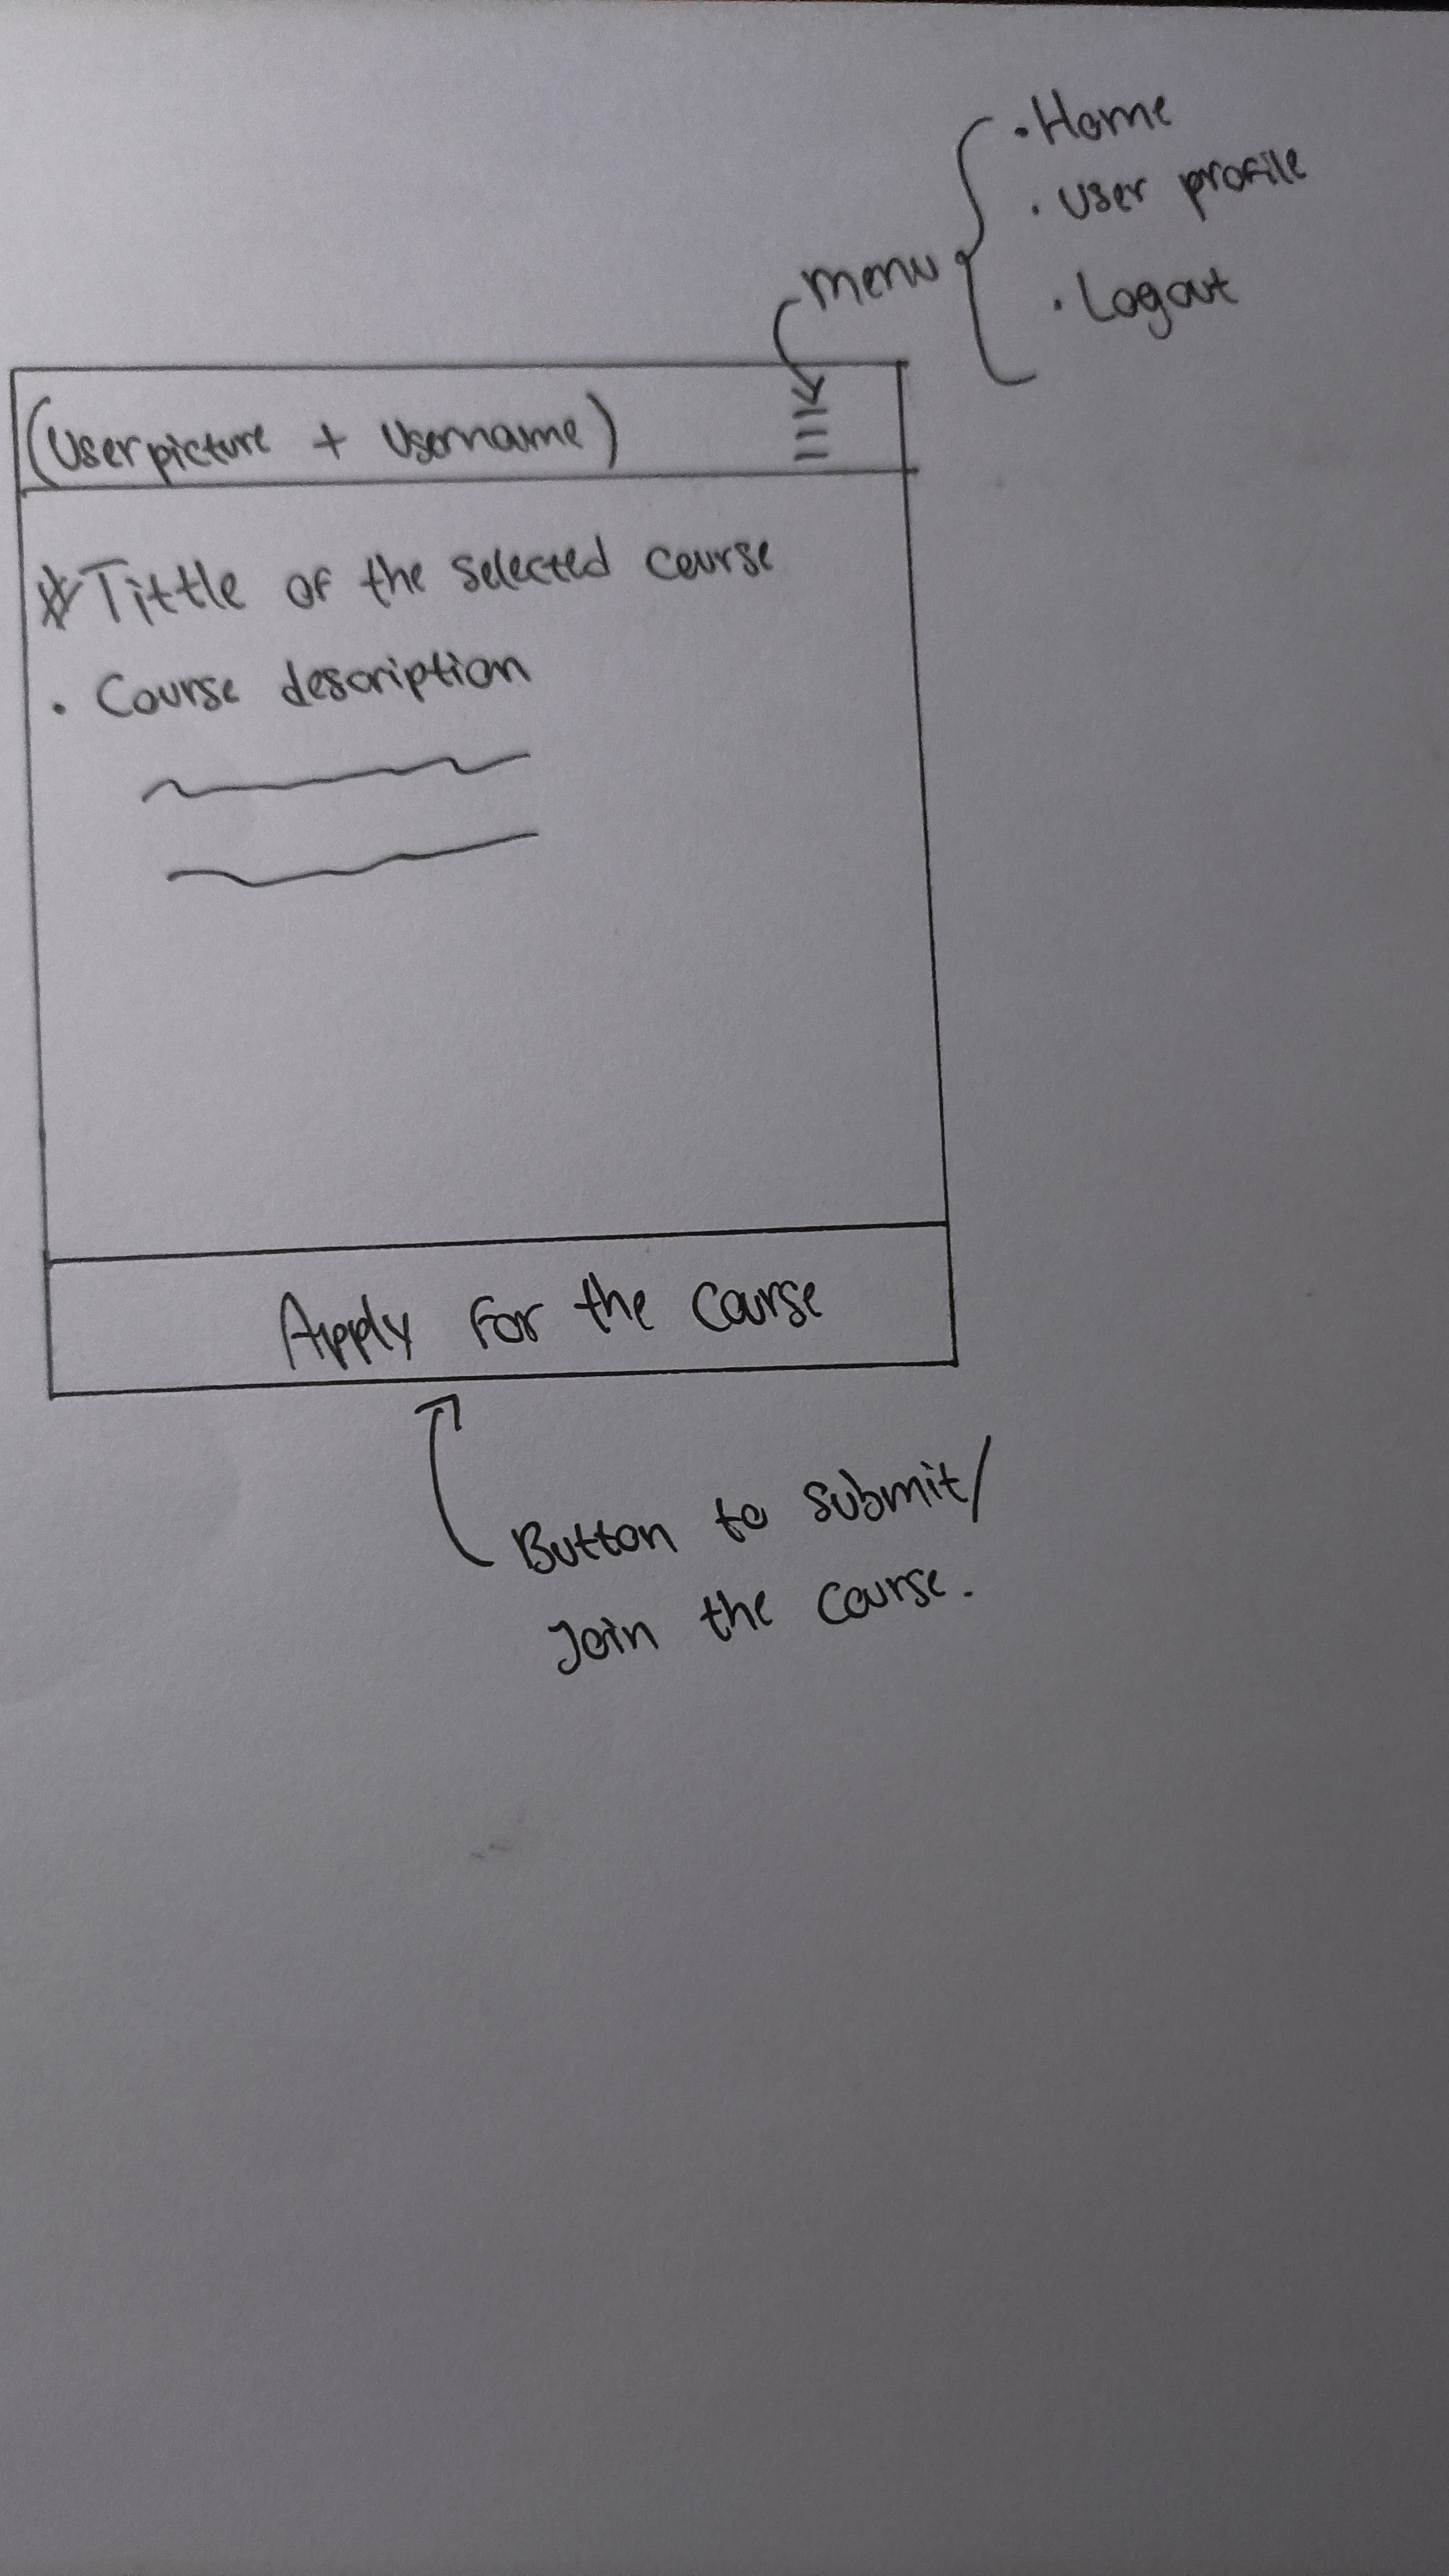 • Home
• User profile
menu
• Logout
(Userpicture + Username)
* Tittle of the selected course
• Course description
Apply For the Course
Button to submit/
Join the course.